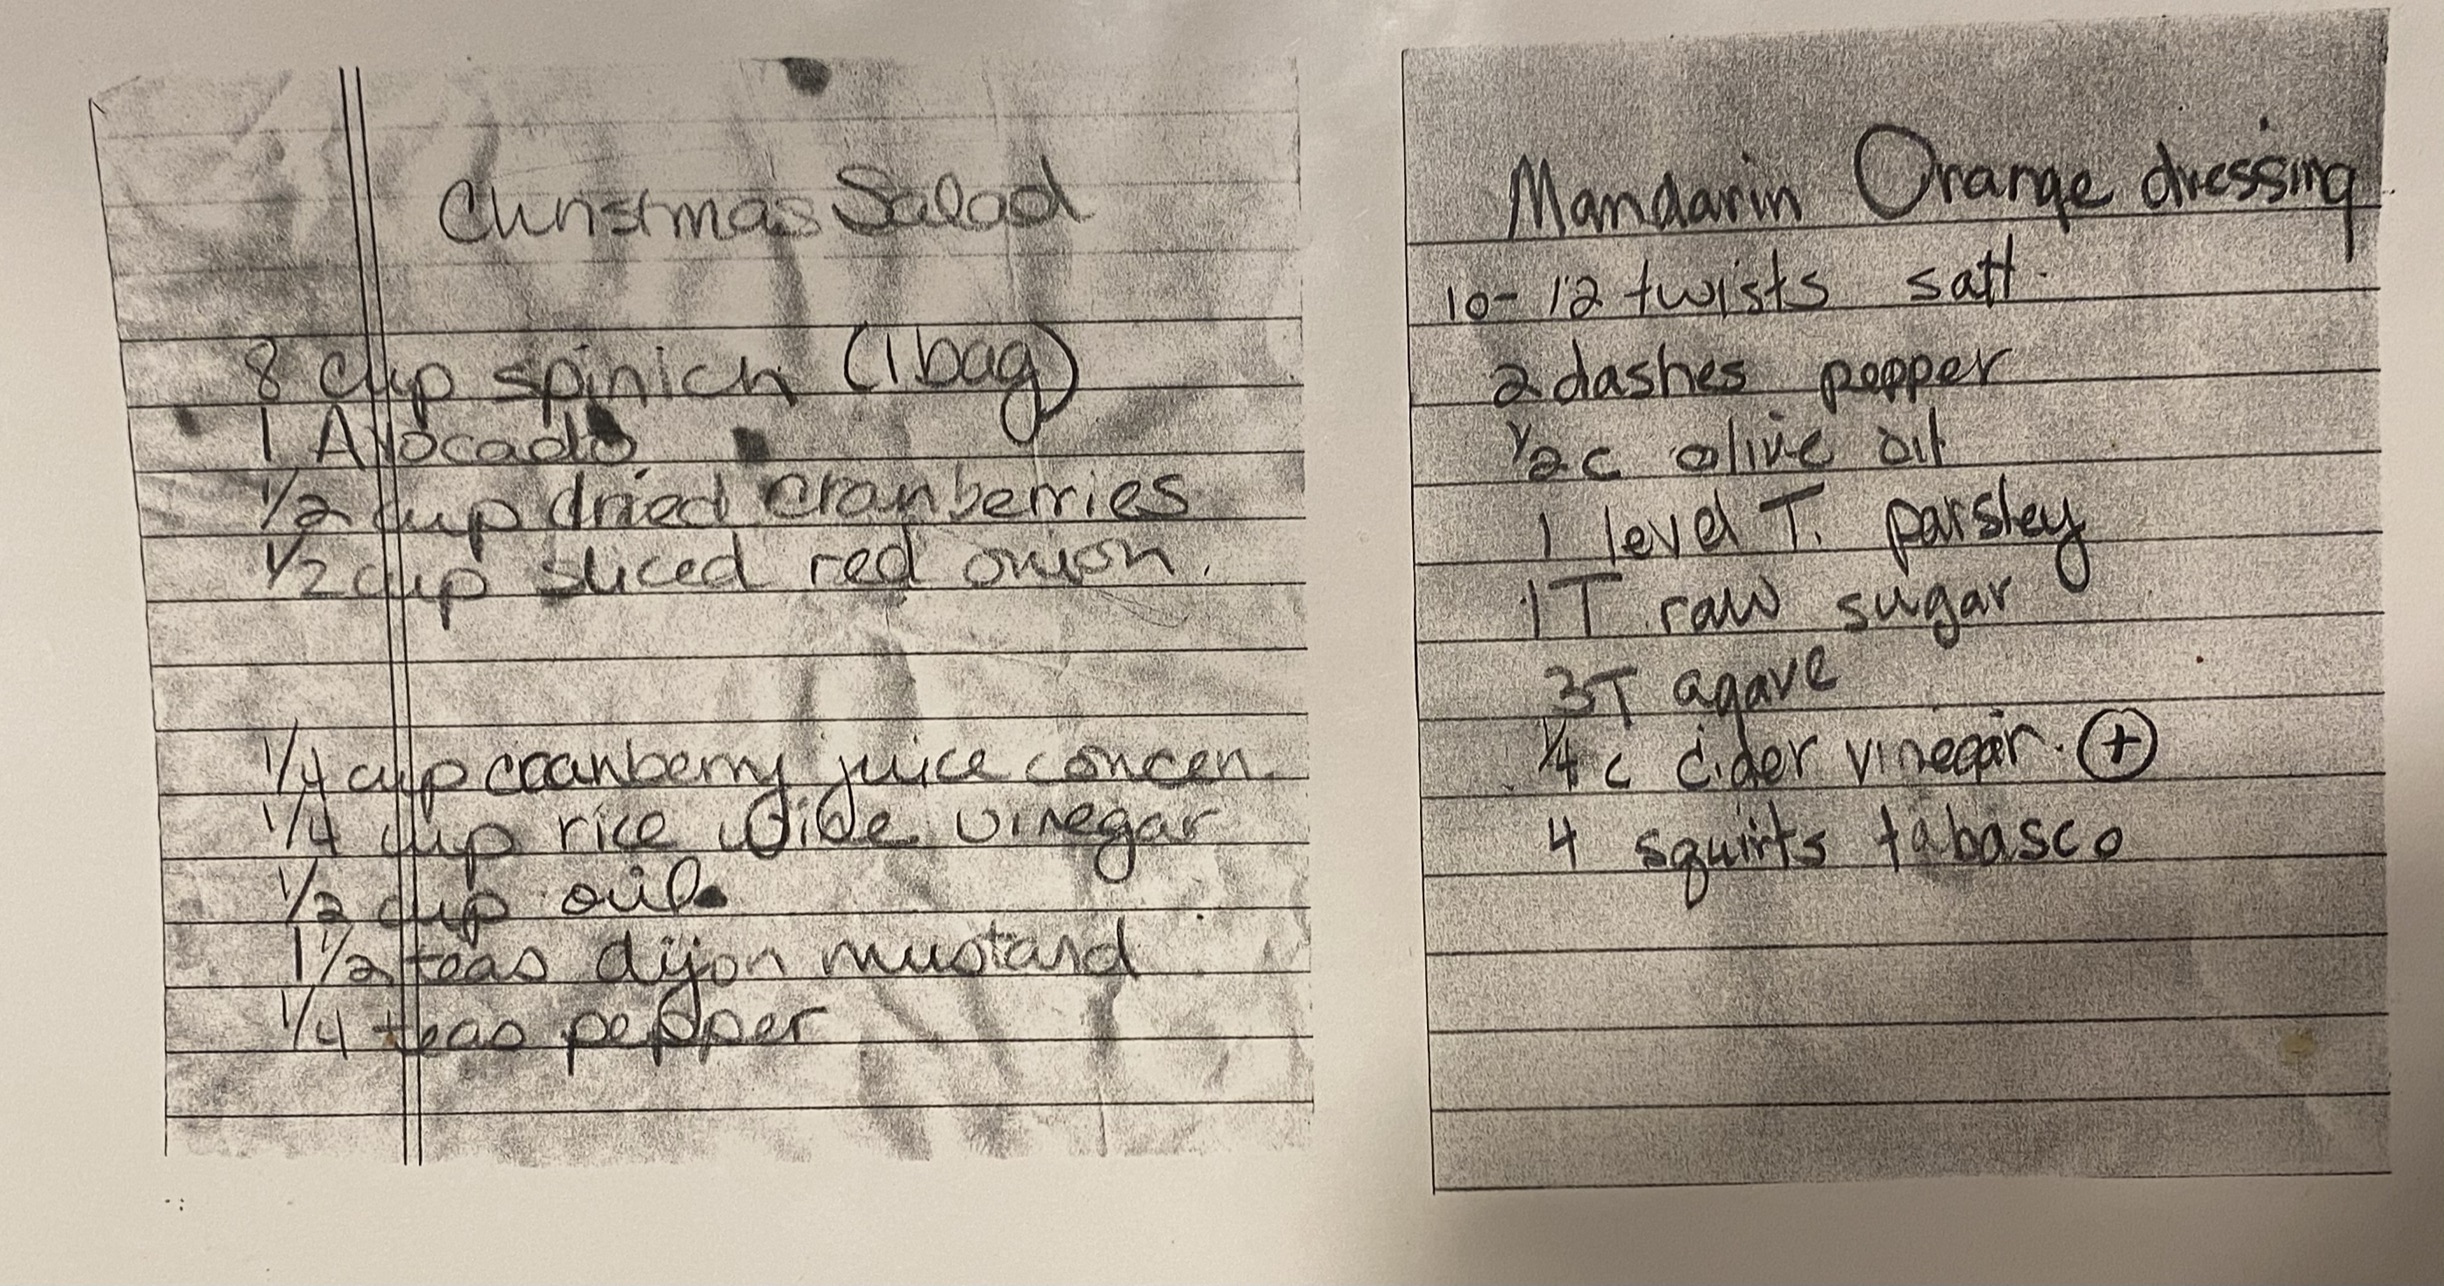 Christmas Salad
8 cup spinich (1 bag)
1 Avocado
1/2 cup dried cranberries
1/2 cup sliced red onion.
1/4 cup cranberry juice concen.
1/4 cup rice wine vinegar
1/2 cup oil
1 1/2 teas dijon mustard
1/4 teas pepper
Mandarin Orange dressing
10-12 twists salt.
2 dashes pepper
1/2 c olive oil
1 level T. parsley
1 T raw sugar
3T agave
1/4 c cider vinegar. +
4 squirts tabasco